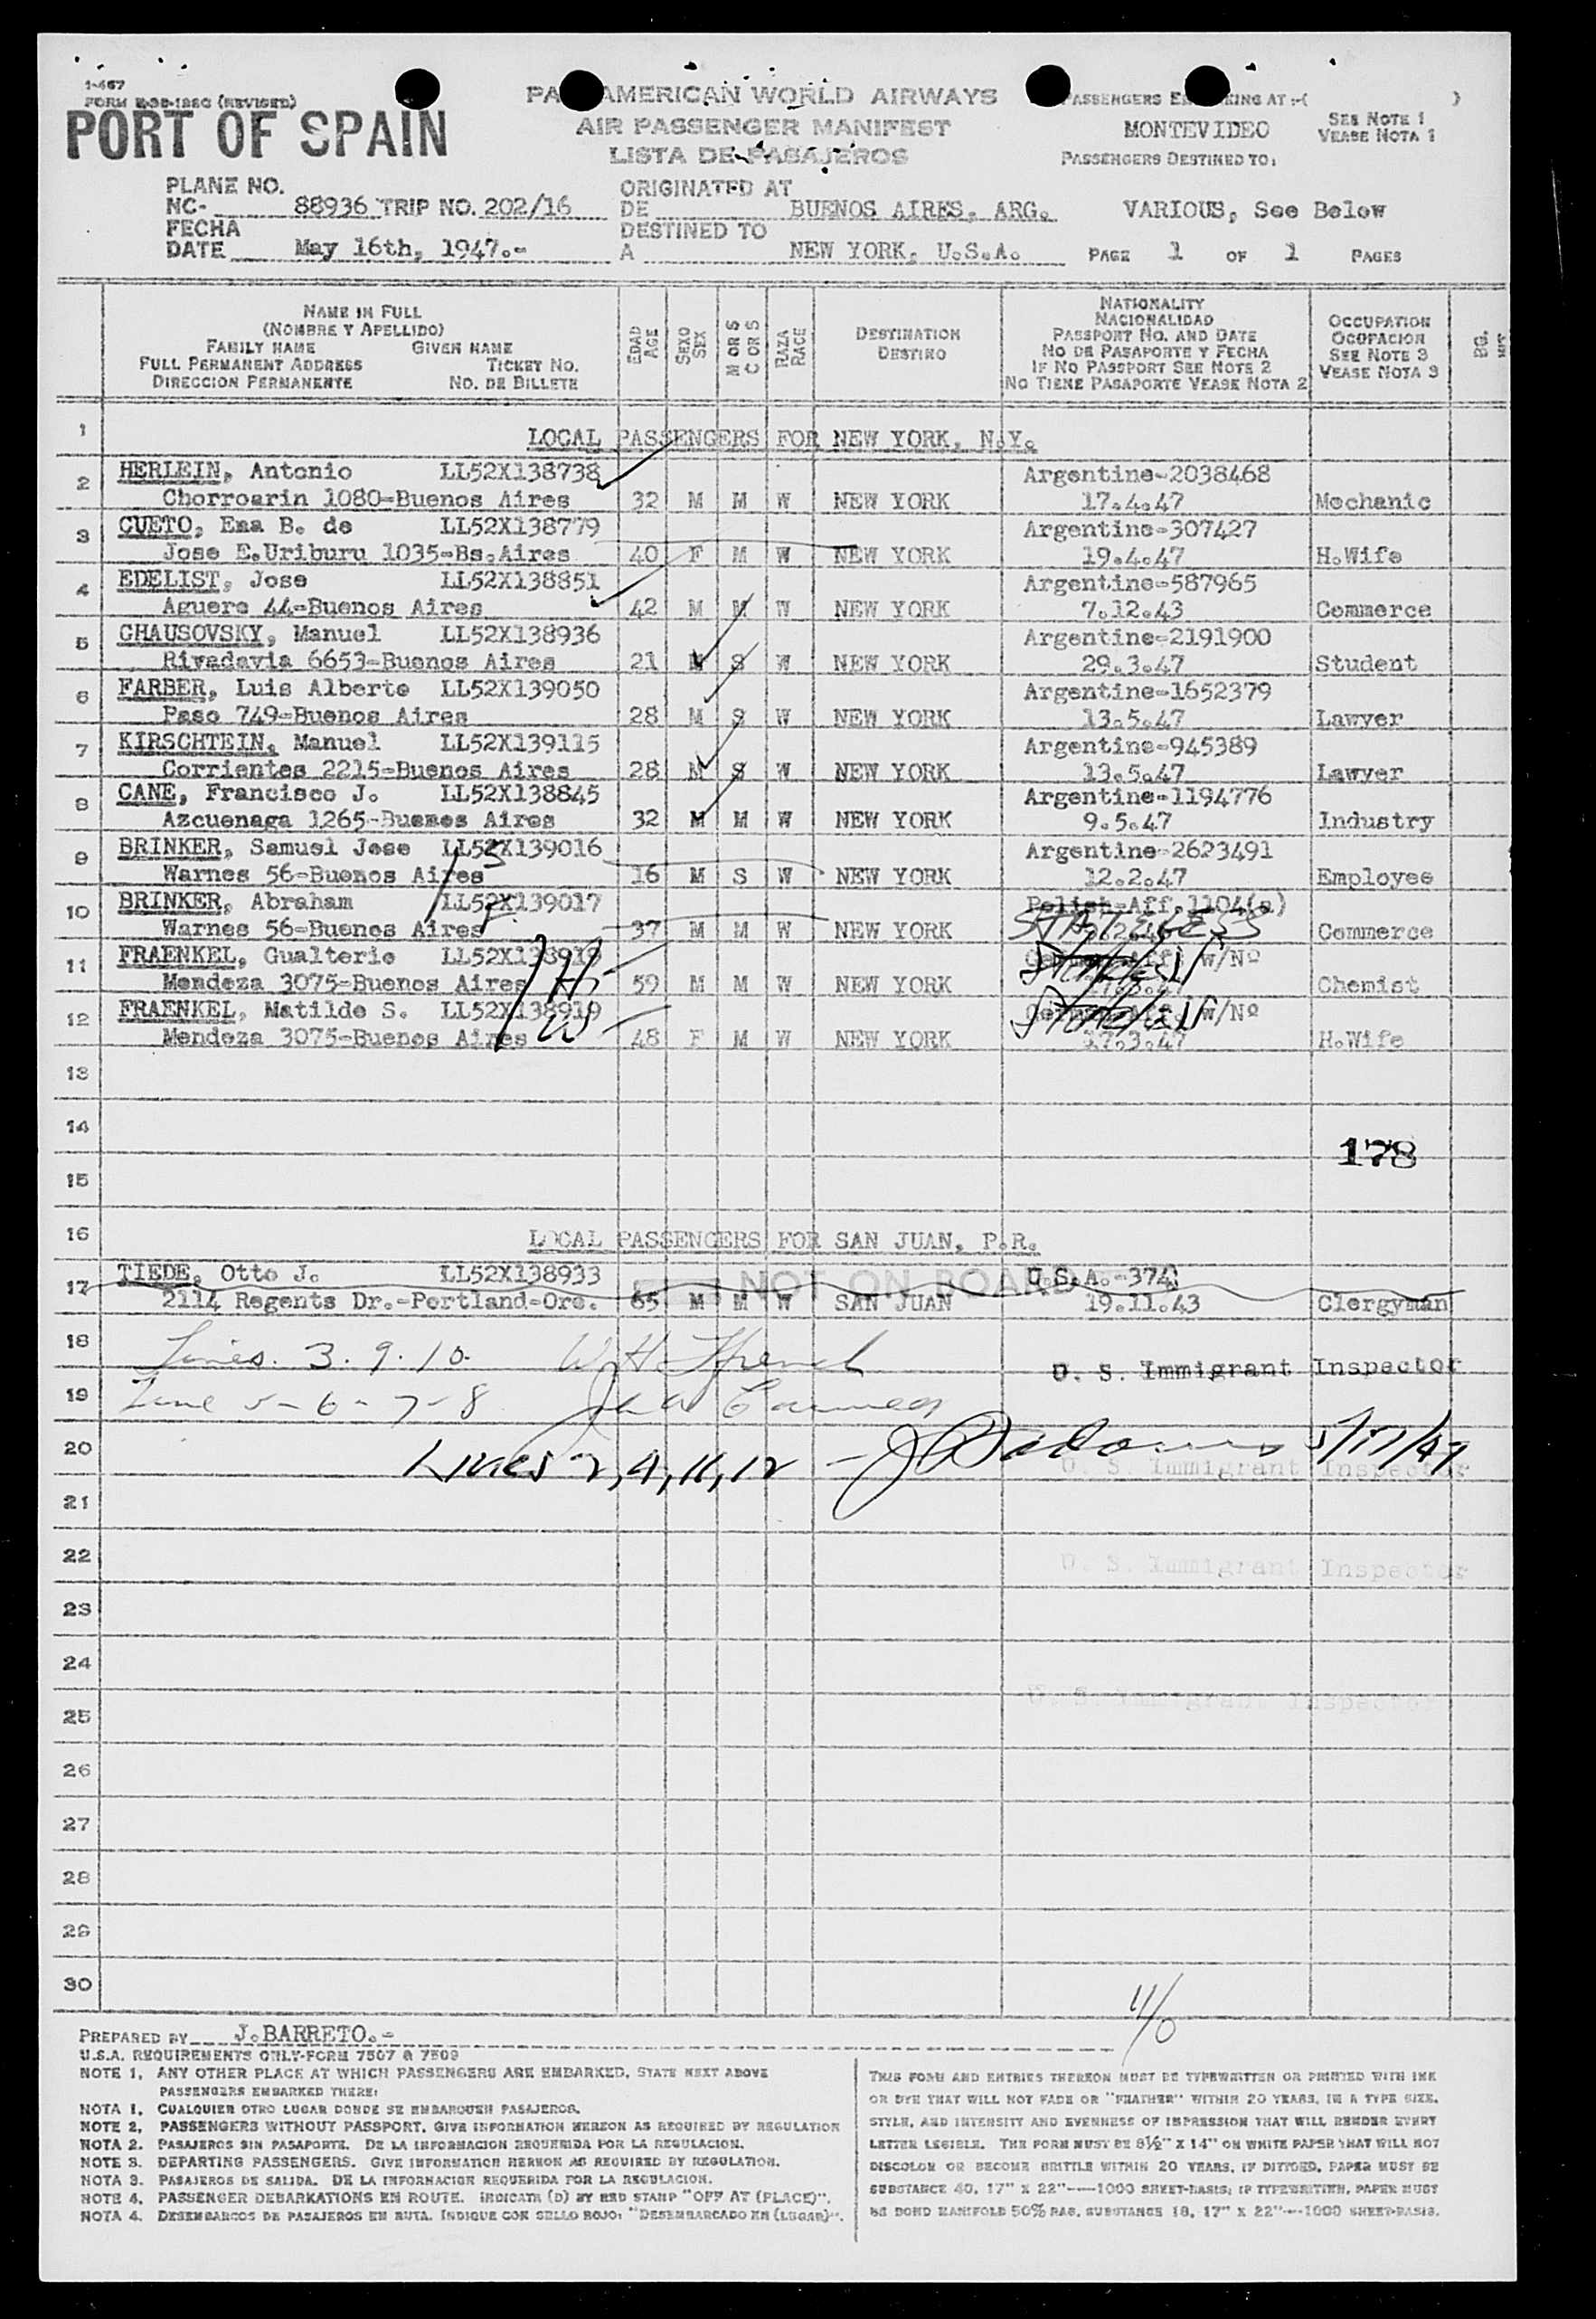 1-467
FORM E-98-122C (REVISED)
PORT OF SPAIN
PAN AMERICAN WORLD AIRWAYS
AIR PASSENGER MANIFEST
LISTA DE PASAJEROS
PASSENGERS EMBARKING AT:-( )
MONTEVIDEO
SEE NOTE 1
VEASE NOTA 1
PASSENGERS DESTINED TO:
PLANE NO.
NC- 88936 TRIP NO. 202/16
FECHA
DATE May 16th, 1947.-
ORIGINATED AT
DE BUENOS AIRES, ARG.
DESTINED TO
A NEW YORK, U.S.A.
VARIOUS, See Below
PAGE 1 OF 1 PAGES
NAME IN FULL
(NOMBRE Y APELLIDO)
FAMILY NAME GIVEN NAME
FULL PERMANENT ADDRESS TICKET NO.
DIRECCION PERMANENTE NO. DE BILLETE
EDAD
AGE
SEXO
SEX
M OR S
C OR S
RAZA
RACE
DESTINATION
DESTINO
NATIONALITY
NACIONALIDAD
PASSPORT NO. AND DATE
NO DE PASAPORTE Y FECHA
IF NO PASSPORT SEE NOTE 2
NO TIENE PASAPORTE VEASE NOTA 2
OCCUPATION
OCUPACION
SEE NOTE 3
VEASE NOTA 3
1 LOCAL PASSENGERS FOR NEW YORK, N.Y.
2 HERLEIN, Antonio LL52X138738 Argentine-2038468
Chorroarin 1080-Buenos Aires 32 M M W NEW YORK 17.4.47 Mechanic
3 CUETO, Ema B. de LL52X138779 Argentine-307427
Jose E.Uriburu 1035-Bs.Aires 40 F M W NEW YORK 19.4.47 H.Wife
4 EDELIST, Jose LL52X138851 Argentine-587965
Aguero 44-Buenos Aires 42 M M W NEW YORK 7.12.43 Commerce
5 CHAUSOVSKY, Manuel LL52X138936 Argentine-2191900
Rivadavia 6653-Buenos Aires 21 M S W NEW YORK 29.3.47 Student
6 FARBER, Luis Alberto LL52X139050 Argentine-1652379
Paso 749-Buenos Aires 28 M S W NEW YORK 13.5.47 Lawyer
7 KIRSCHTEIN, Manuel LL52X139115 Argentine-945389
Corrientes 2215-Buenos Aires 28 M S W NEW YORK 13.5.47 Lawyer
8 CANE, Francisco J. LL52X138845 Argentine-1194776
Azcuenaga 1265-Buenos Aires 32 M M W NEW YORK 9.5.47 Industry
9 BRINKER, Samuel Jose LL52X139016 Argentine-2623491
Warnes 56-Buenos Aires 16 M S W NEW YORK 12.2.47 Employee
10 BRINKER, Abraham LL52X139017 Polish-Aff.1104(s)
Warnes 56-Buenos Aires 37 M M W NEW YORK STATELESS Commerce
11 FRAENKEL, Gualterio LL52X138918 Stateless w/Nº
Mendoza 3075-Buenos Aires H 59 M M W NEW YORK Chemist
12 FRAENKEL, Matilde S. LL52X138919 Stateless w/Nº
Mendoza 3075-Buenos Aires W 48 F M W NEW YORK 17.3.47 H.Wife
13
14
178
15
16 LOCAL PASSENGERS FOR SAN JUAN, P.R.
17 TIEDE, Otto J. LL52X138933 NOT ON BOARD U.S.A.-374
2114 Regents Dr.-Portland-Ore. 65 M M W SAN JUAN 19.11.43 Clergyman
18 Lines. 3. 9. 10. W.H. French U. S. Immigrant Inspector
19 Line 5-6-7-8
20 Lines 2, 4, 11, 12 - 5/17/47
U. S. Immigrant Inspector
21
22 U. S. Immigrant Inspector
23
24
U. S. Immigrant Inspector
25
26
27
28
29
30
11/0
PREPARED BY J.BARRETO.-
U.S.A. REQUIREMENTS ONLY-FORM 7507 & 7509
NOTE 1, ANY OTHER PLACE AT WHICH PASSENGERS ARE EMBARKED, STATE NEXT ABOVE
PASSENGERS EMBARKED THERE:
NOTA 1. CUALQUIER OTRO LUGAR DONDE SE EMBARQUEN PASAJEROS.
NOTE 2, PASSENGERS WITHOUT PASSPORT. GIVE INFORMATION HEREON AS REQUIRED BY REGULATION
NOTA 2. PASAJEROS SIN PASAPORTE. DE LA INFORMACION REQUERIDA POR LA REGULACION.
NOTE 3. DEPARTING PASSENGERS. GIVE INFORMATION HEREON AS REQUIRED BY REGULATION.
NOTA 3. PASAJEROS DE SALIDA. DE LA INFORMACION REQUERIDA POR LA REGULACION.
NOTE 4, PASSENGER DEBARKATIONS EN ROUTE. INDICATE (D) BY RED STAMP "OFF AT (PLACE)".
NOTA 4. DESEMBARCOS DE PASAJEROS EN RUTA. INDIQUE CON SELLO ROJO: "DESEMBARCADO EN (LUGAR)".
THIS FORM AND ENTRIES THEREON MUST BE TYPEWRITTEN OR PRINTED WITH INK
OR DYE THAT WILL NOT FADE OR "FEATHER" WITHIN 20 YEARS, IN A TYPE SIZE,
STYLE, AND INTENSITY AND EVENNESS OF IMPRESSION THAT WILL RENDER EVERY
LETTER LEGIBLE. THE FORM MUST BE 8½" X 14" ON WHITE PAPER THAT WILL NOT
DISCOLOR OR BECOME BRITTLE WITHIN 20 YEARS. IF DITTOED, PAPER MUST BE
SUBSTANCE 40, 17" X 22"----1000 SHEET-BASIS; IF TYPEWRITTEN, PAPER MUST
BE BOND MANIFOLD 50% RAG, SUBSTANCE 18, 17" X 22"---1000 SHEET-BASIS.